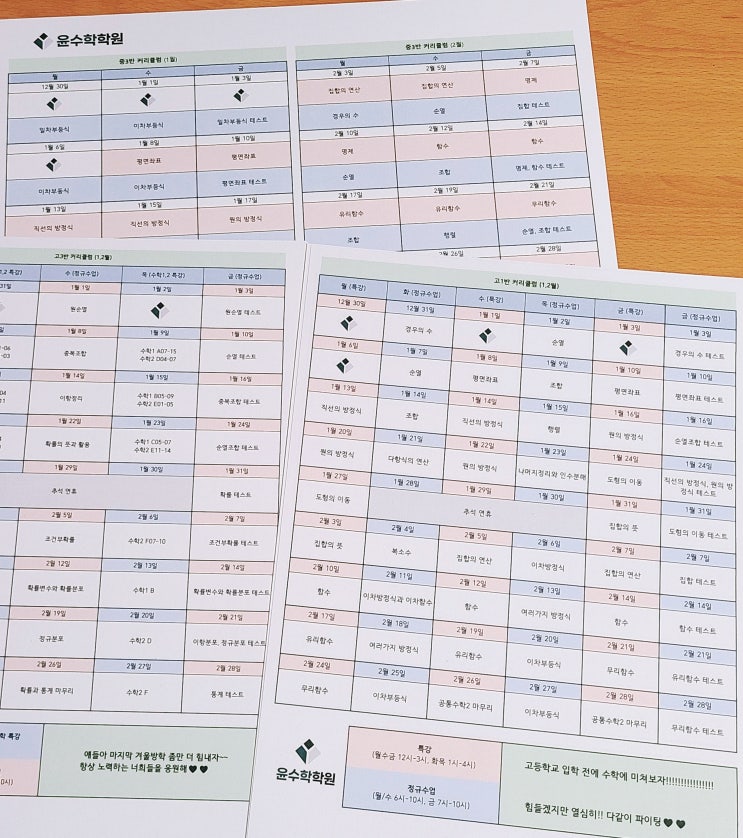 윤수학학원
중3반 커리큘럼 (1월)
월 수 금
12월 30일 1월 1일 1월 3일
일차부등식 이차부등식 일차부등식 테스트
1월 6일 1월 8일 1월 10일
평면좌표 평면좌표
이차부등식 이차부등식 평면좌표 테스트
1월 13일 1월 15일 1월 17일
직선의 방정식 직선의 방정식 원의 방정식
중3반 커리큘럼 (2월)
월 수 금
2월 3일 2월 5일 2월 7일
집합의 연산 집합의 연산 명제
경우의 수 순열 집합 테스트
2월 10일 2월 12일 2월 14일
명제 함수 함수
순열 조합 명제, 함수 테스트
2월 17일 2월 19일 2월 21일
유리함수 유리함수 무리함수
조합 행렬 순열, 조합 테스트
2월 26일 2월 28일
고3반 커리큘럼 (1,2월)
1,2 특강) 수 (정규수업) 목 (수학1,2 특강) 금 (정규수업)
31일 1월 1일 1월 2일 1월 3일
원순열 원순열 테스트
1월 8일 1월 9일 1월 10일
-06 중복조합 수학1 A07-15 순열 테스트
-03 수학2 D04-07
1월 14일 1월 15일 1월 16일
04 이항정리 수학1 B05-09 중복조합 테스트
11 수학2 E01-05
1월 22일 1월 23일 1월 24일
확률의 뜻과 활용 수학1 C05-07 순열조합 테스트
수학2 E11-14
1월 29일 1월 30일 1월 31일
추석 연휴 확률 테스트
2월 5일 2월 6일 2월 7일
조건부확률 수학2 F07-10 조건부확률 테스트
2월 12일 2월 13일 2월 14일
확률변수와 확률분포 수학1 B 확률변수와 확률분포 테스트
2월 19일 2월 20일 2월 21일
정규분포 수학2 D 이항분포, 정규분포 테스트
2월 26일 2월 27일 2월 28일
확률과 통계 마무리 수학2 F 통계 테스트
학 특강
0시)
얘들아 마지막 겨울방학 좀만 더 힘내자~~
항상 노력하는 너희들을 응원해♥♥
고1반 커리큘럼 (1,2월)
월 (특강) 화 (정규수업) 수 (특강) 목 (정규수업) 금 (특강) 금 (정규수업)
12월 30일 12월 31일 1월 1일 1월 2일 1월 3일 1월 3일
경우의 수 순열 경우의 수 테스트
1월 6일 1월 7일 1월 8일 1월 9일 1월 10일 1월 10일
순열 평면좌표 조합 평면좌표 평면좌표 테스트
1월 13일 1월 14일 1월 14일 1월 15일 1월 16일 1월 16일
직선의 방정식 조합 직선의 방정식 행렬 원의 방정식 순열조합 테스트
1월 20일 1월 21일 1월 22일 1월 23일 1월 24일 1월 24일
원의 방정식 다항식의 연산 원의 방정식 나머지정리와 인수분해 도형의 이동 직선의 방정식, 원의 방
정식 테스트
1월 27일 1월 28일 1월 29일 1월 30일 1월 31일 1월 31일
도형의 이동 추석 연휴 집합의 뜻 도형의 이동 테스트
2월 3일 2월 4일 2월 5일 2월 6일 2월 7일 2월 7일
집합의 뜻 복소수 집합의 연산 이차방정식 집합의 연산 집합 테스트
2월 10일 2월 11일 2월 12일 2월 13일 2월 14일 2월 14일
함수 이차방정식과 이차함수 함수 여러가지 방정식 함수 함수 테스트
2월 17일 2월 18일 2월 19일 2월 20일 2월 21일 2월 21일
유리함수 여러가지 방정식 유리함수 이차부등식 무리함수 유리함수 테스트
2월 24일 2월 25일 2월 26일 2월 27일 2월 28일 2월 28일
무리함수 이차부등식 공통수학2 마무리 이차부등식 공통수학2 마무리 무리함수 테스트
윤수학학원
특강
(월수금 12시-3시, 화목 1시-4시)
정규수업
(월/수 6시-10시, 금 7시-10시)
고등학교 입학 전에 수학에 미쳐보자!!!!!!!!!!!!!!!!
힘들겠지만 열심히!! 다같이 파이팅♥♥